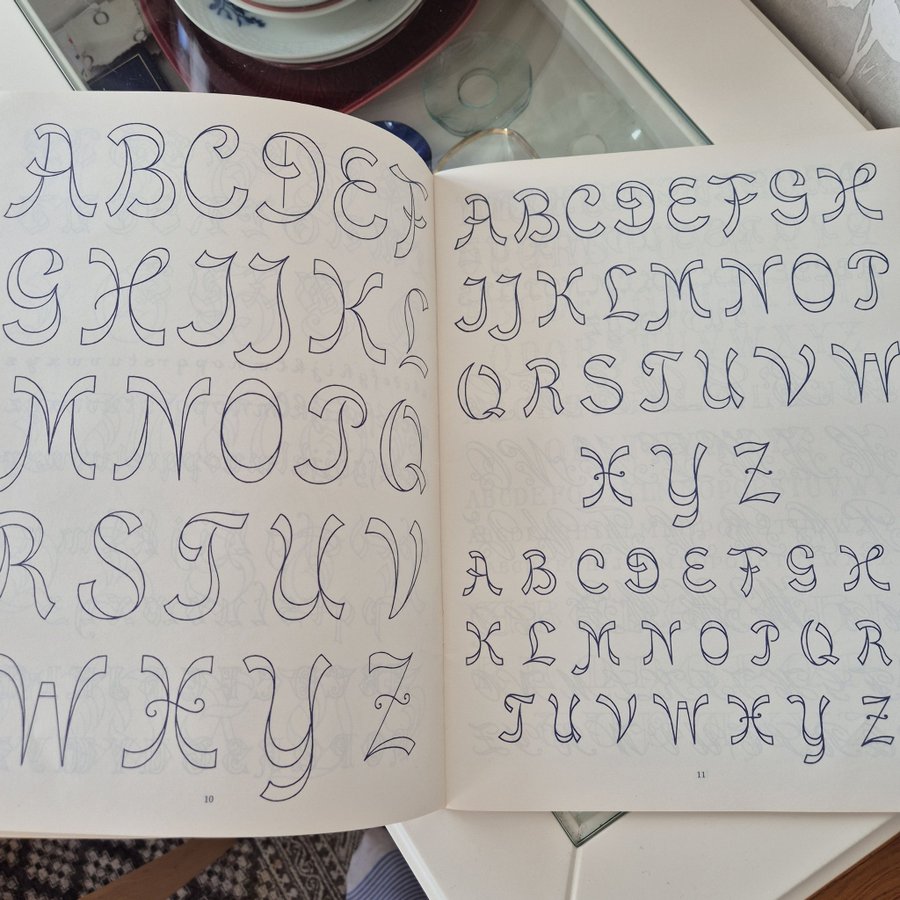 ABCDEF
GHIJKL
MNOPQ
RSTUV
WXYZ
10
ABCDEFGH
IJKLMNOP
QRSTUVW
XYZ
ABCDEFGH
KLMNOPQR
TUVWXYZ
11